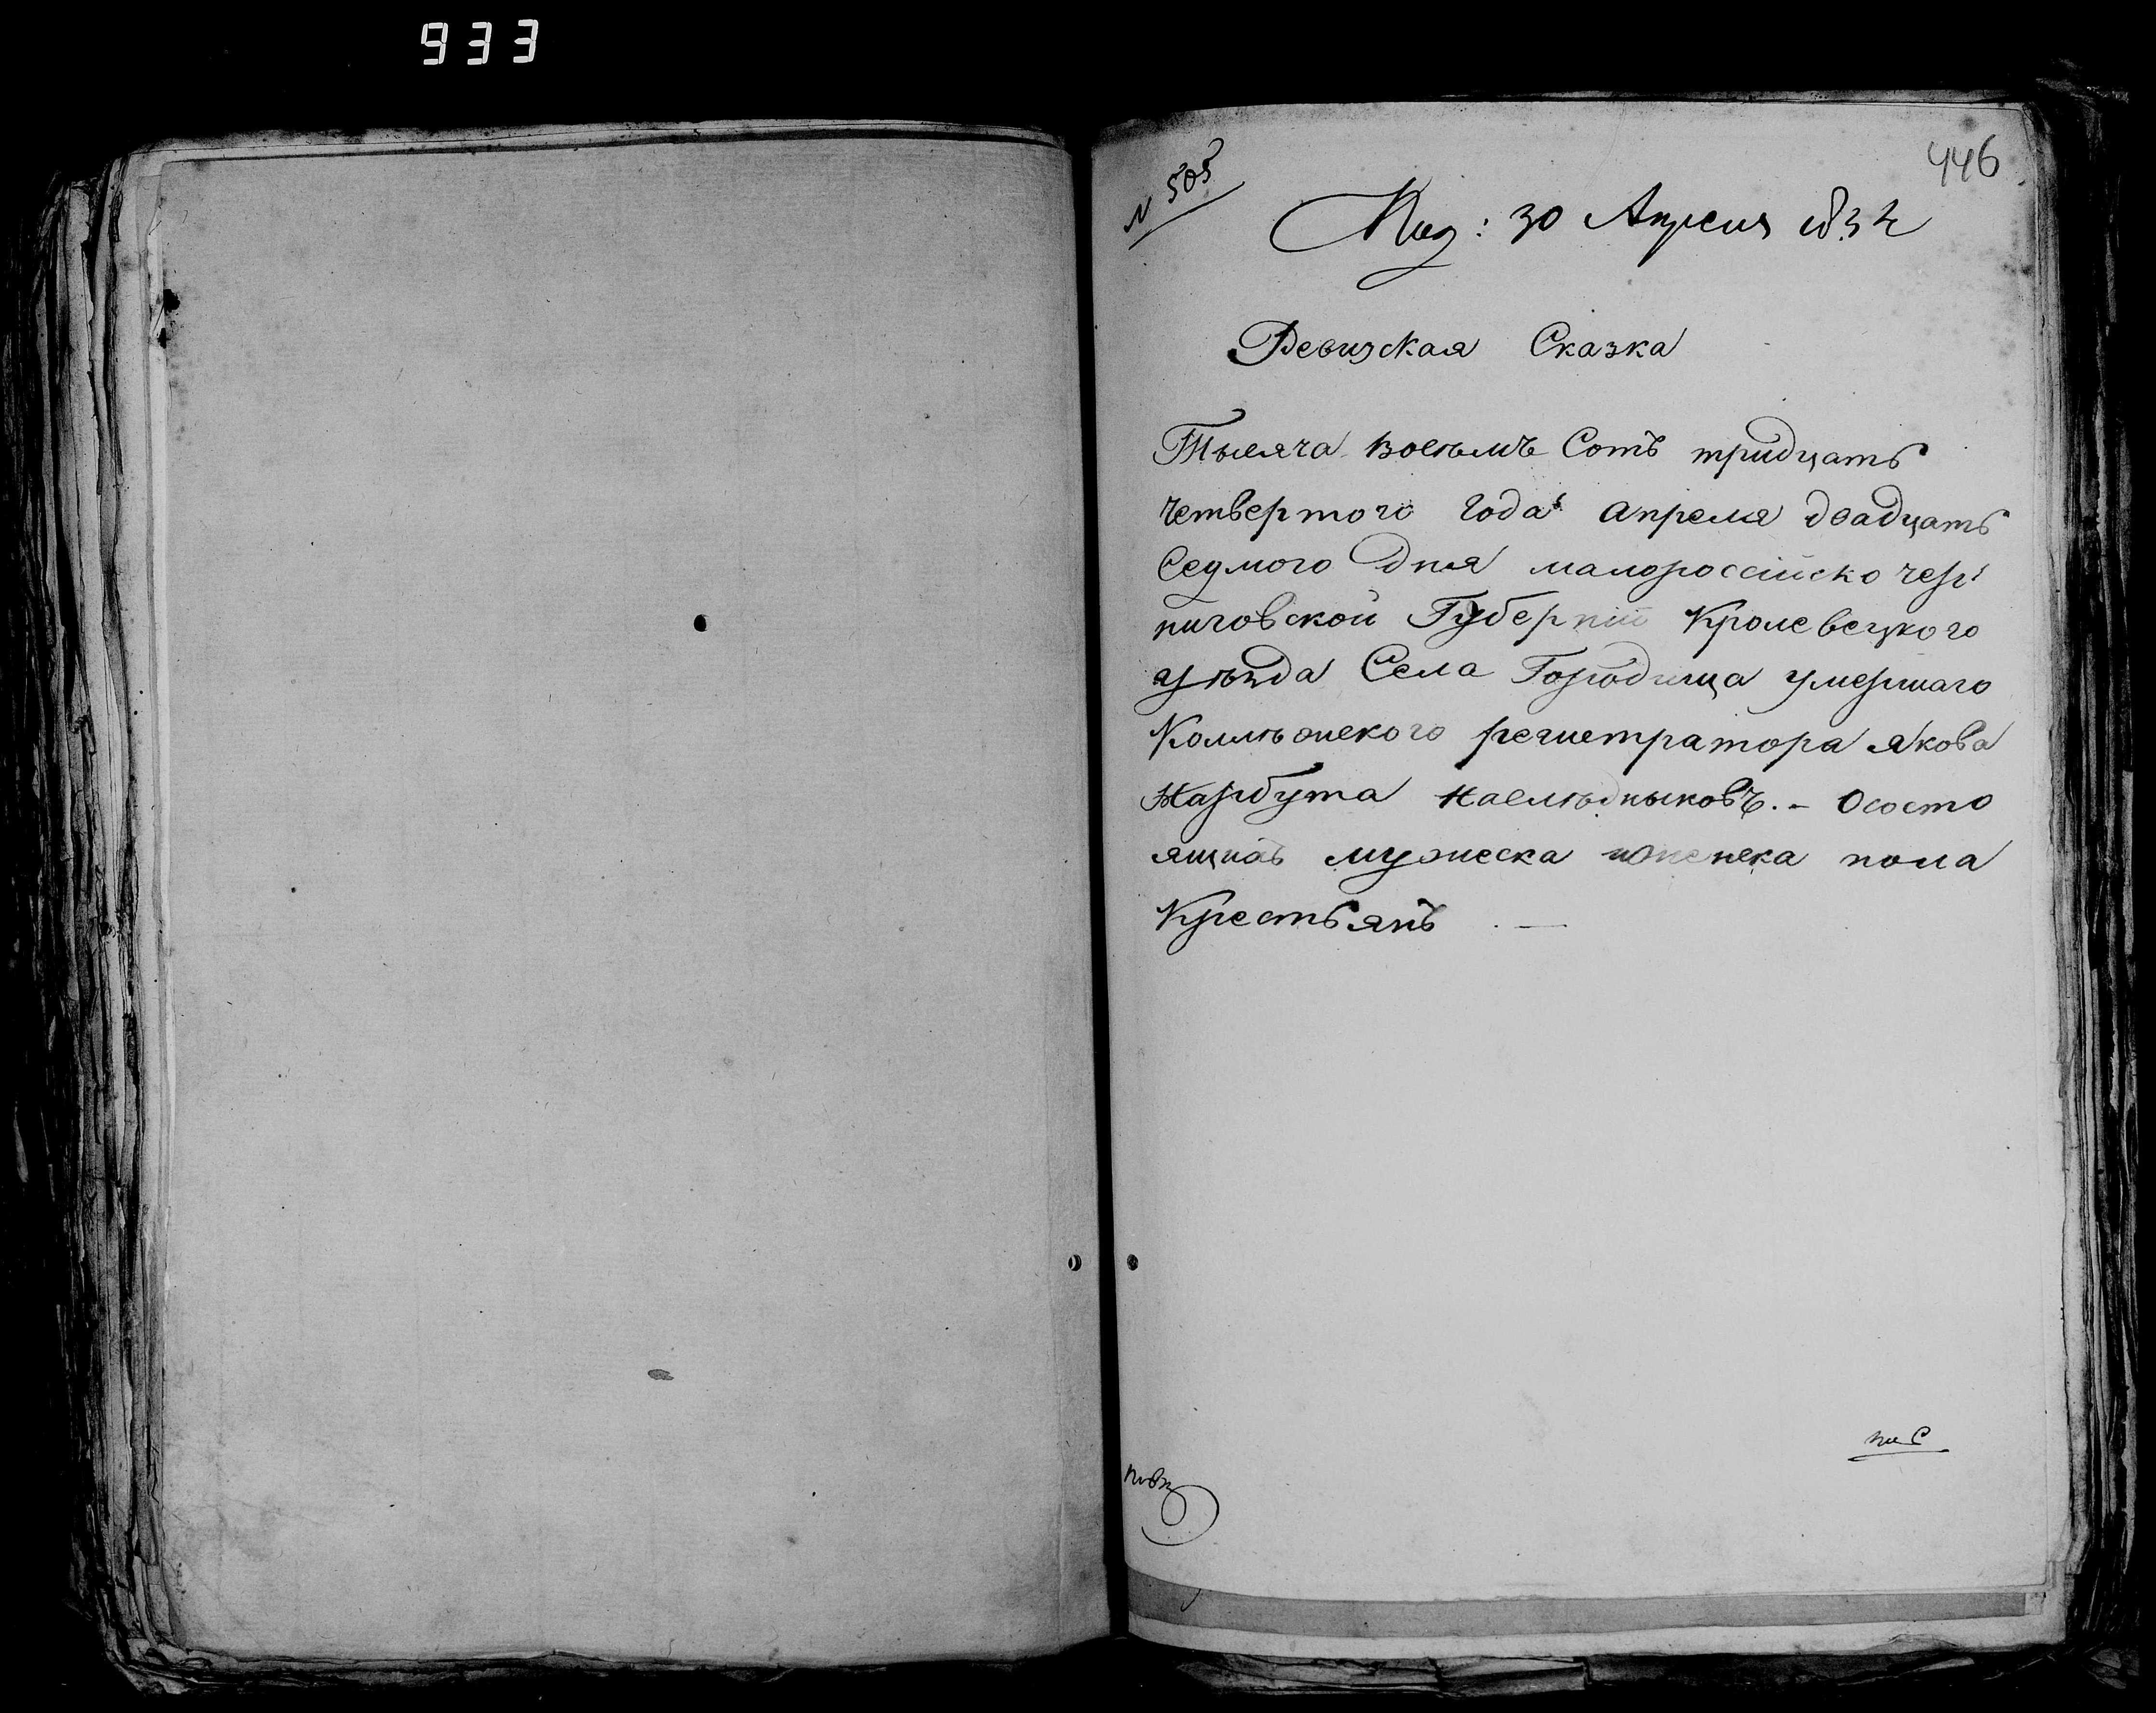 933
446
N 505
Под: 30 Апреля 1834
Ревизская Сказка
Тысяча восъмъ Сотъ тридцать
четвертого года апреля двадцать
Седмого Дня малороссийско чер
ниговской Губернии Кролевецкого
уезъда Села Городища умершаго
Коллѣжского регистратора якова
Нарбута наслѣдныковъ. – О состо
ящихъ мужеска и женска пола
Крестьянъ . —